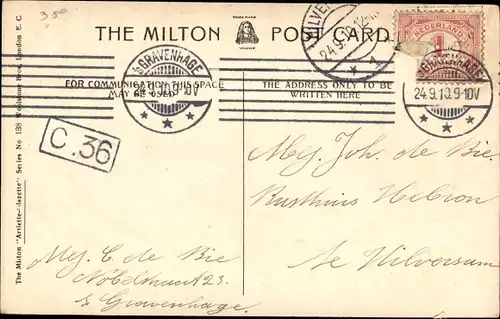 3 50
THE MILTON POST CARD
HILVER
24.9.10.12-1
NEDERLAND
1
'S GRAVENHAGE
24.9.10.9-10V
'S GRAVENHAGE
24.9.10.9-10V
FOR COMMUNICATION THIS SPACE
MAY BE USED
THE ADDRESS ONLY TO BE
WRITTEN HERE
C.36
The Milton "Artlette-Glazette" Series No 139 Woolstone Bros, London E.C.
Mej. Joh. de Bie
Rusthuis Hebron
Te Hilversum
Mej. C. de Bie
Nobelstraat 23.
s Gravenhage.